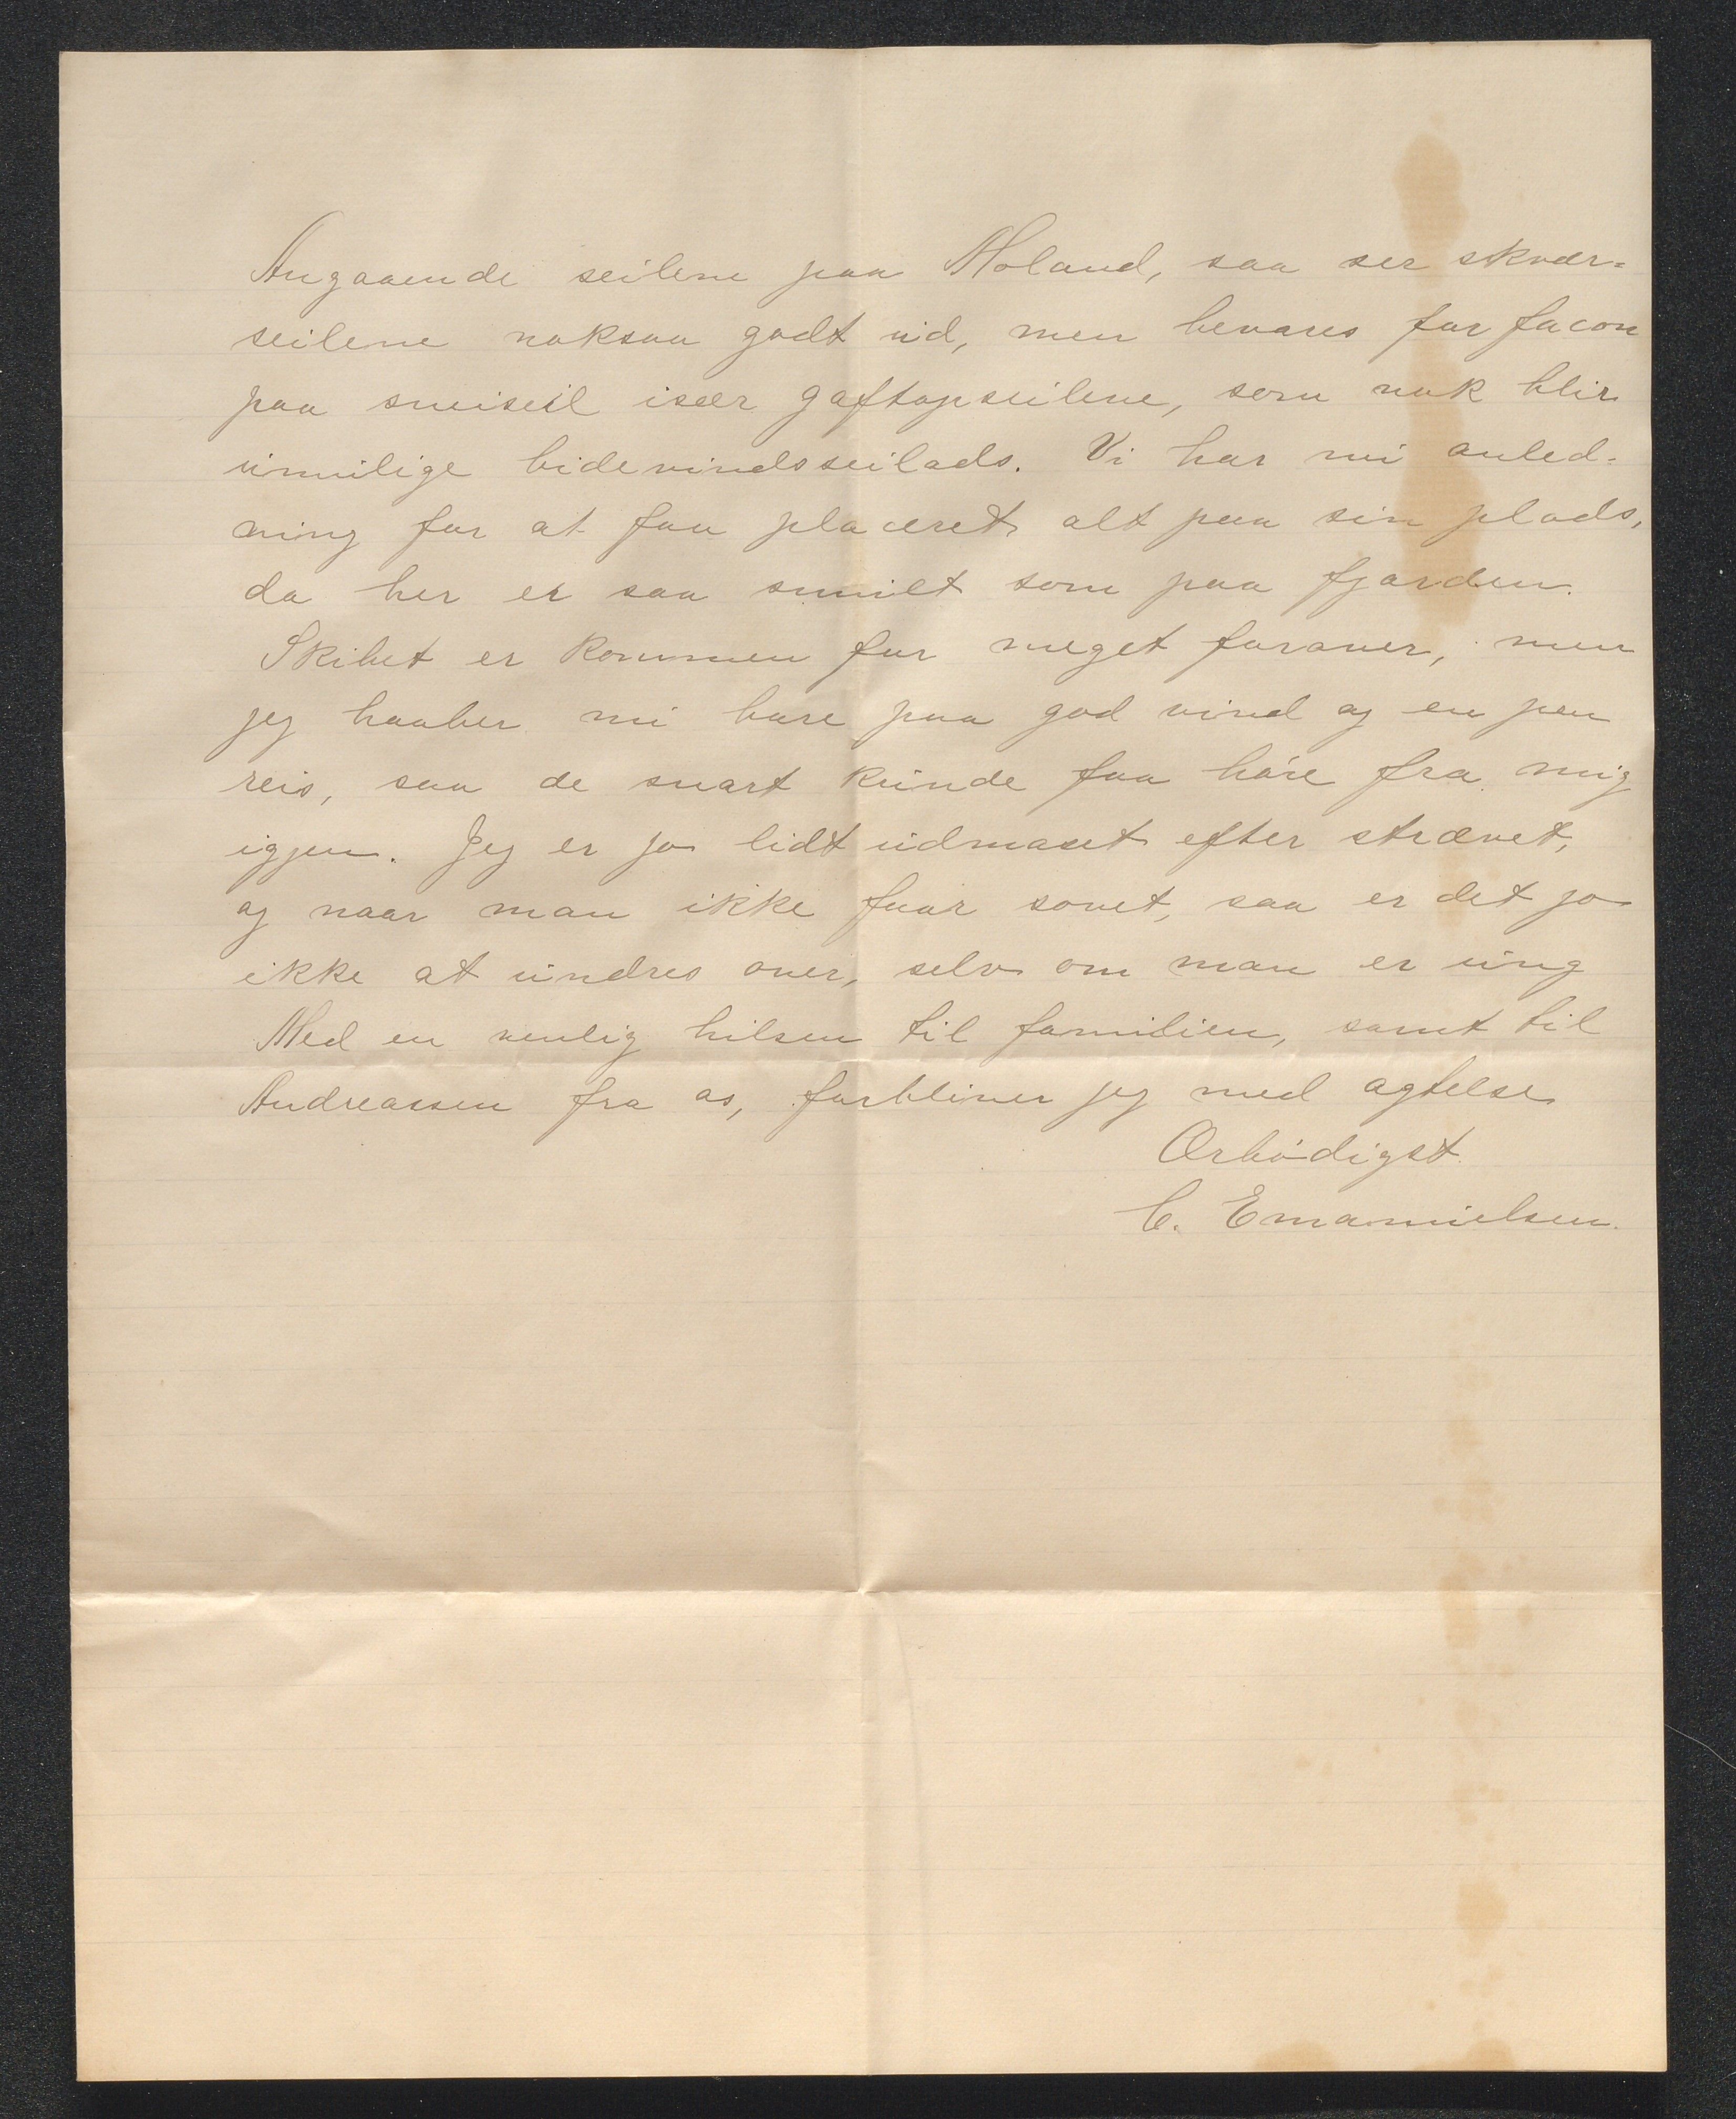 Angaaende seilene paa Moland, saa ser skvær=
seilene noksaa godt ud, men bevares for facon
paa sneiseil især gaftopseilene, som nok blir
umulige bidevindsseilads. Vi har nu anled-
ning for at faa placeret alt paa sin plads,
da her er saa smult som paa fjorden.
Skibet er kommen for meget forover, men
jeg haaber nu bare paa god vind og en pen
reis, saa de snart kunde faa høre fra mig
igjen. Jeg er jo lidt udmaset efter strævet,
og naar man ikke faar sovet, saa er det jo
ikke at undres over, selv om man er ung
Med en venlig hilsen til familien, samt til
Andreassen fra os, forbliver jeg med agtelse
Ærbødigst
C. Emanuelsen.